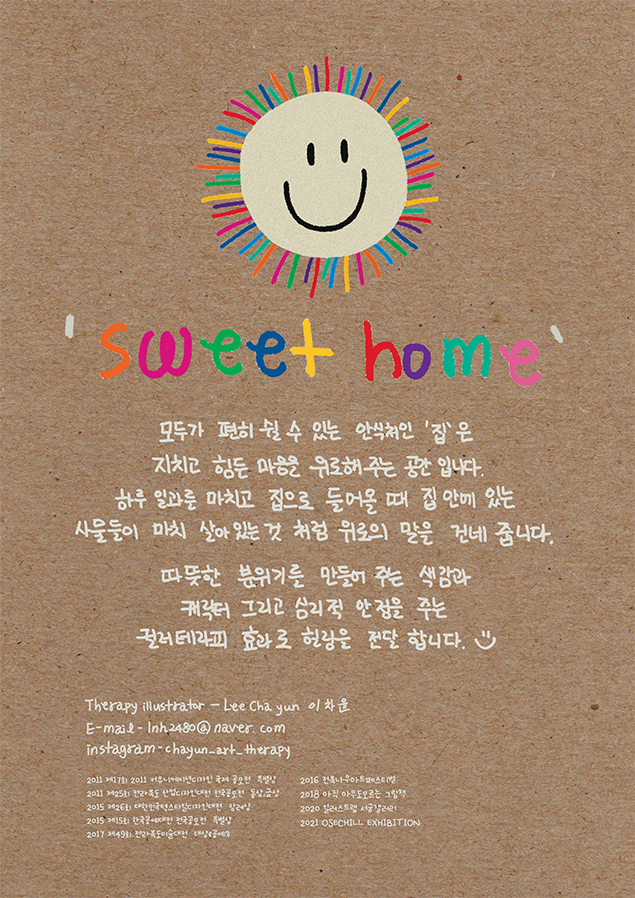 'sweet home'
모두가 편히 쉴 수 있는 안식처인 '집'은
지치고 힘든 마음을 위로해 주는 공간 입니다.
하루 일과를 마치고 집으로 들어올 때 집 안에 있는
사물들이 마치 살아 있는 것 처럼 위로의 말을 건네 줍니다.
따뜻한 분위기를 만들어 주는 색감과
캐릭터 그리고 심리적 안정을 주는
컬러테라피 효과로 힐링을 전달 합니다.
Therapy illustrator - Lee Cha yun 이차윤
E-mail - lnh2480@naver.com
instagram - chayun_art_therapy
2011 제17회 2011 커뮤니케이션디자인 국제 공모전 특별상
2011 제25회 전라북도 산업디자인대전 전국공모전 동상,금상
2015 제26회 대한민국텍스타일디자인대전 장려상
2015 제15회 한국공예대전 전국공모전 특별상
2017 제49회 전라북도미술대전 대상
2016 전북나우아트페스티벌
2018 아직 아무도모르는 그림책
2020 일러스트랩 서공갤러리
2021 OSECHILL EXHIBITION